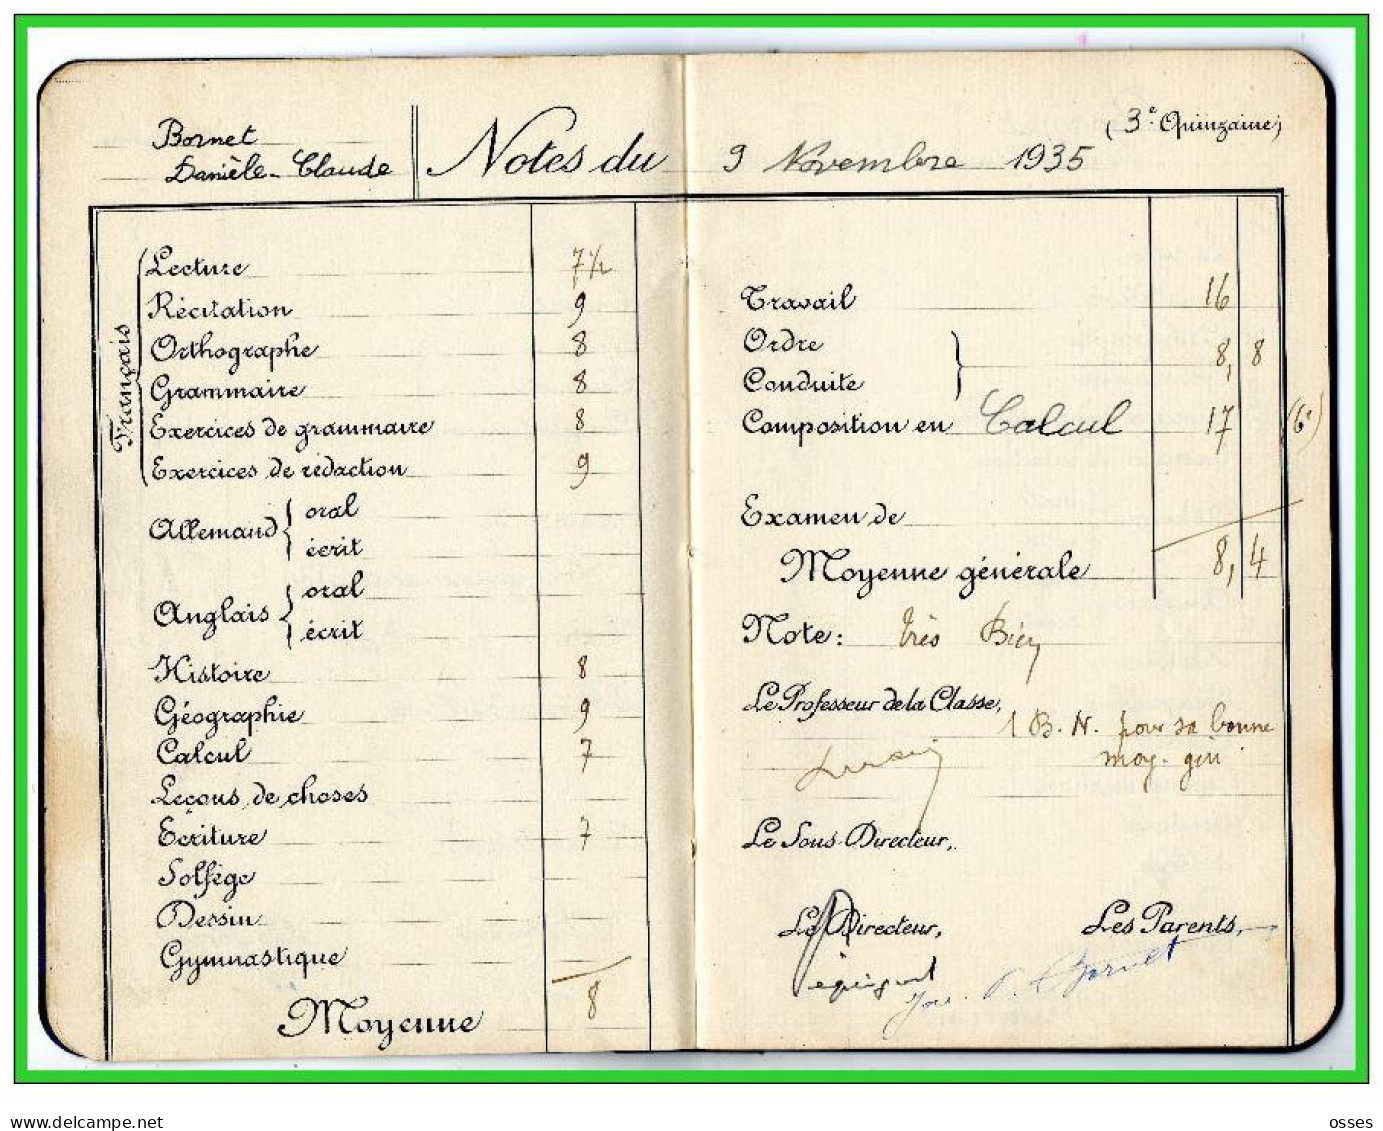 Bornet
Danièle-Claude
Notes du 9 Novembre 1935
(3e Quinzaine)
Français
Lecture 7 1/2
Récitation 9
Orthographe 8
Grammaire 8
Exercices de grammaire 8
Exercices de rédaction 9
Allemand { oral
écrit
Anglais { oral
écrit
Histoire 8
Géographie 9
Calcul 7
Leçons de choses
Ecriture 7
Solfège
Dessin
Gymnastique
Moyenne 8
Travail 16
Ordre
Conduite } 8, 8
Composition en Calcul 17 (6e)
Examen de
Moyenne générale 8, 4
Note: Très Bien
Le Professeur de la Classe,
1 B. N. pour sa bonne
moy. gén
Le Sous-Directeur,
Le Directeur,
Les Parents,
Bornet
delcampe.net
osses